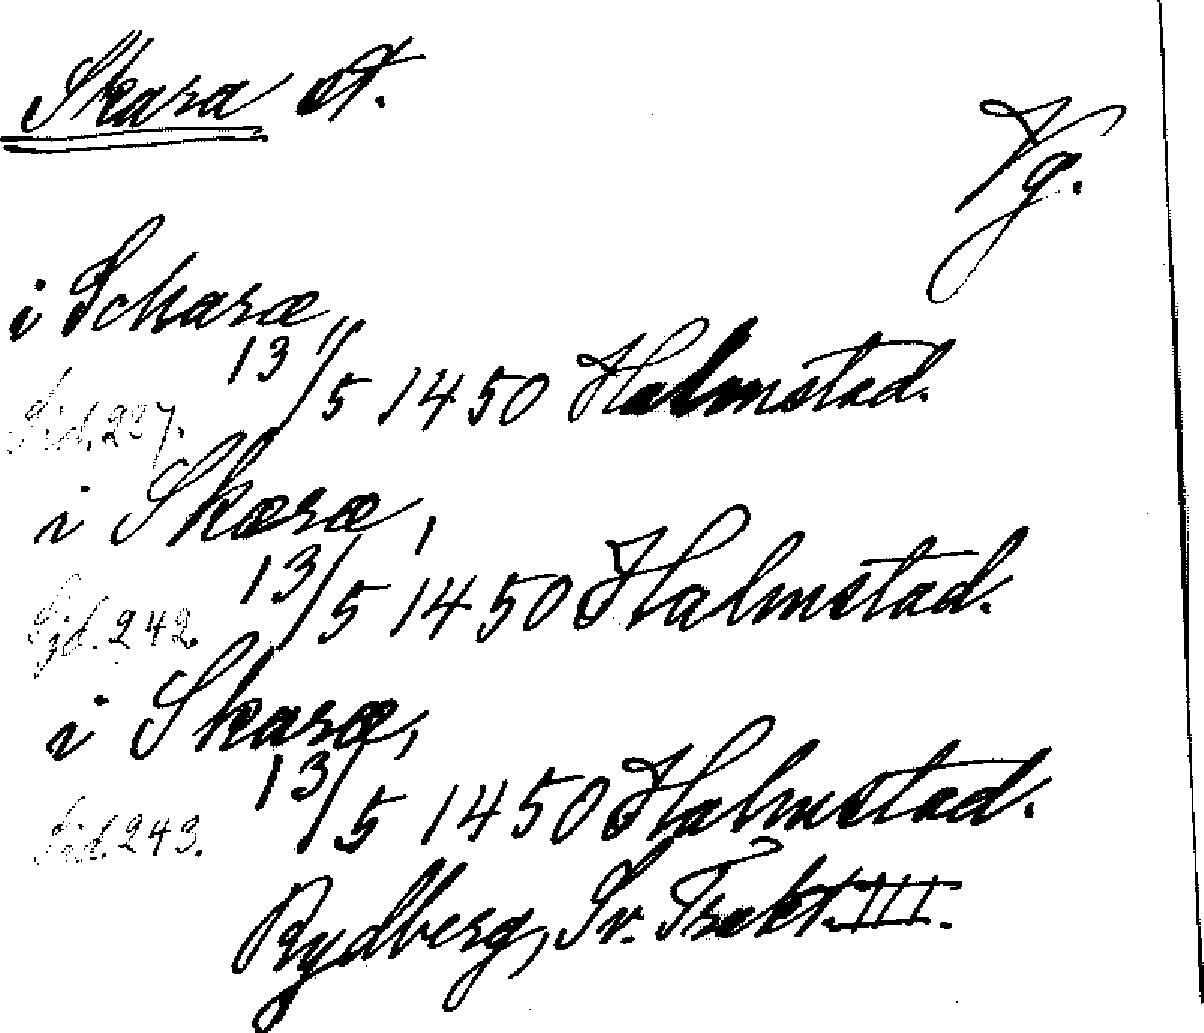 Skara st.
Vg.
i Scharæ,
13/5 1450 Halmstad.
Sid. 237.
i Skaræ,
13/5 1450 Halmstad.
Sid. 242.
i Skaræ,
13/5 1450 Halmstad.
Sid. 243.
Rydberg, Sv. Trakt. III.